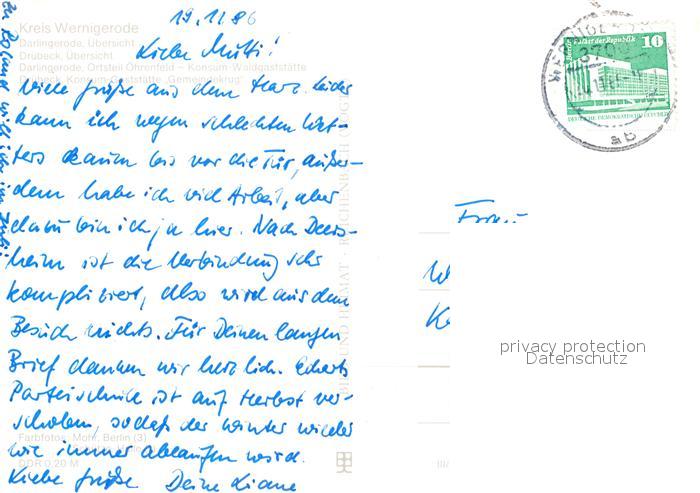 19.11.86
Kreis Wernigerode
Darlingerode, Übersicht
Drübeck, Übersicht
Darlingerode, Ortsteil Öhrenfeld – Konsum-Waldgaststätte
Drübeck, Konsum-Gaststätte „Gemeindekrug“
Liebe Mutti!
Viele Grüße aus dem Harz. Leider
kann ich wegen schlechten Wet-
ters kaum bis vor die Tür, außer-
dem habe ich viel Arbeit, aber
dazu bin ich ja hier. Nach Deers-
heim ist die Verbindung sehr
kompliziert, also wird aus dem
Besuch nichts. Für Deinen langen
Brief danken wir herzlich. Eckarts
Parteischule ist auf Herbst ver-
schoben, sodaß der Winter wieder
wie immer ablaufen wird.
Liebe Grüße Deine Liane
Farbfotos: Mohr, Berlin (3)
DDR 0,20 M
BILD UND HEIMAT · REICHENBACH
Frau
W
K
Berlin Palast der Republik
10
DEUTSCHE DEMOKRATISCHE REPUBLIK
370
ab
privacy protection
Datenschutz